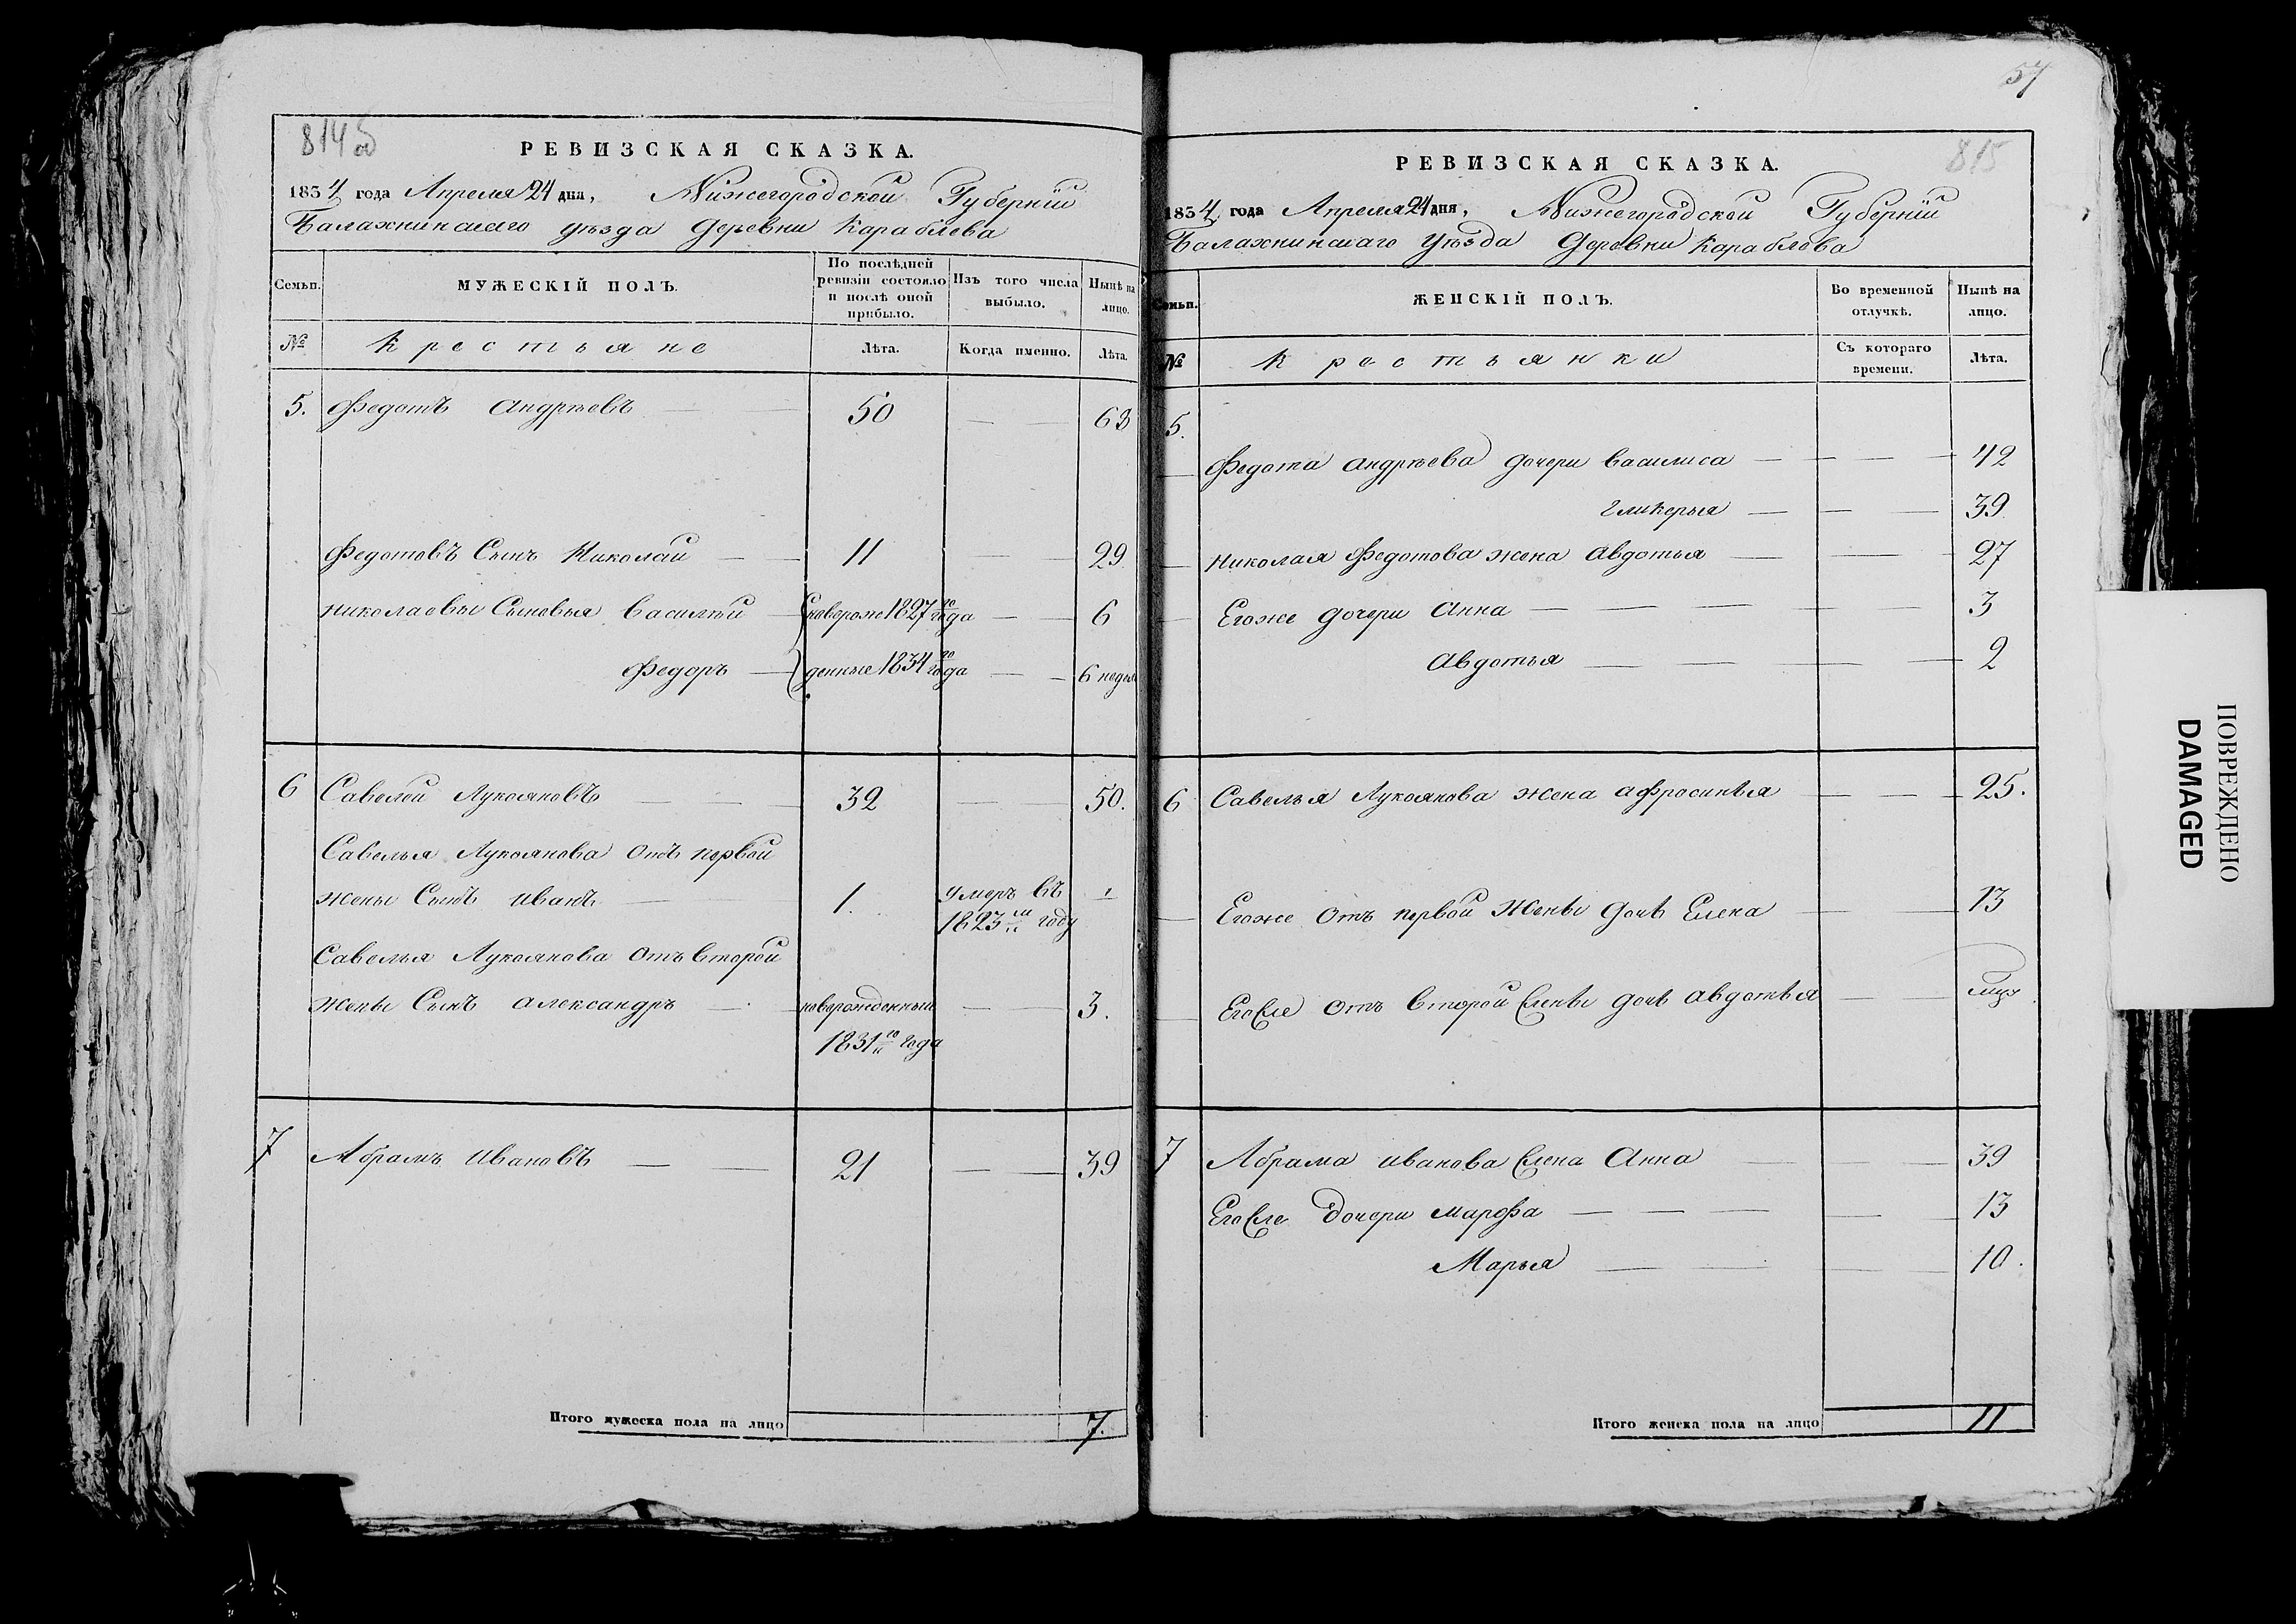 814 об
РЕВИЗСКАЯ СКАЗКА.
1834 года Апреля 24 дня, Нижегородской Губерніи
Балахнинскаго уѣзда деревни Караблева
Семьи.
МУЖЕСКІЙ ПОЛЪ.
По послѣдней ревизіи состояло и послѣ оной прибыло.
Изъ того числа выбыло.
Нынѣ на лицо.
№
Крестьяне
Лѣта.
Когда именно.
Лѣта.
5. Федотъ Андрѣевъ 50 68
Федотовъ Сынъ Николай 11 29
Николаевы Сыновья Василѣй новорож 1827го года 6
Федоръ денные 1834го года 6 недель
6 Савелей Лукояновъ 32 50.
Савелья Лукоянова Отъ первой
жены Сынъ Иванъ 1. умеръ въ
1823м году
Савелья Лукоянова Отъ второй
жены Сынъ Александръ новорожденный 3.
1831го года
7 Абрамъ Ивановъ 21 39
Итого мужеска пола на лицо 7.
57
815
РЕВИЗСКАЯ СКАЗКА.
1834 года Апреля 24 дня, Нижегородской Губерніи
Балахнинскаго уѣзда деревни Караблева
Семьи.
ЖЕНСКІЙ ПОЛЪ.
Во временной отлучкѣ.
Нынѣ на лицо.
№
Крестьянки
Съ котораго времени.
Лѣта.
5.
Федота Андрѣева дочери Василиса 42
Гликерья 39
Николая Федотова жена Авдотья 27
Егоже дочери Анна 3
Авдотья 2
6 Савелья Лукоянова жена Афросинья 25.
Егоже Отъ первой Жены дочь Елена 13
Егоже Отъ второй жены дочь Авдотья
7 Абрама Иванова жена Анна 39
Егоже Дочери Марфа 13
Марья 10.
Итого женска пола на лицо 11
ПОВРЕЖДЕНО
DAMAGED